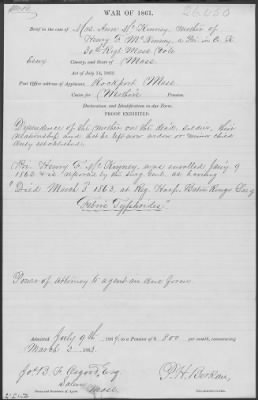 WAR OF 1861.
26,650
Brief in the case of Mrs. Ann McKinney, Mother of
Henry F. McKinney, a Pri. in Co. K
30th Regt Mass Vols
Essex County, and State of Mass.
Act of July 14, 1862.
Post Office address of Applicant, Rockport Mass.
Claim for Mother's Pension.
Declaration and Identification in due form.
PROOF EXHIBITED.
Dependence of the mother on the dec'd soldier, their
relationship and that he left no widow or minor child
duly established.
Pri. Henry F. McKinney was enrolled Jan'y 9
1862 & is reported by the Surg. Genl. as having
"Died March 3, 1863, at Reg. Hosp. Baton Rouge La. of
"Febris Typhoides."
Power of Attorney to agent in due form.
Admitted July 9th, 1864, to a Pension of $ 8.00 per month, commencing
March 3, 1863.
Jos. B. F. Osgood, Esq.
Salem
Mass
Name and Residence of Agent.